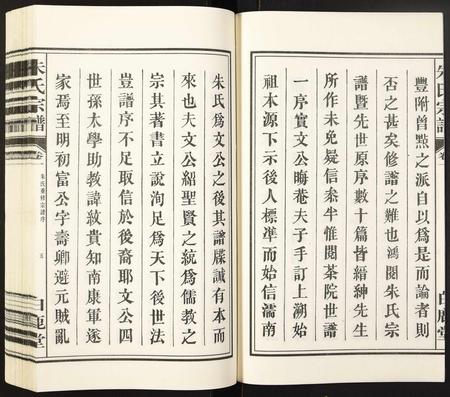 豐附曾點之派自以爲是而論者則
否之甚矣修譜之難也鴻閱朱氏宗
譜暨先世原序數十篇皆縉紳先生
所作未免疑信叅半惟閱茶院世譜
一序實文公晦菴夫子手訂上溯始
祖木源下示後人標凖而始信濡南
朱氏爲文公之後其譜牒誠有本而
來也夫文公紹聖賢之統爲儒教之
宗其著書立說洵足爲天下後世法
豈譜序不足取信於後裔耶文公四
世孫太學助教諱敹貴知南康軍遂
家焉至明初富公字壽卿避元賊亂
朱氏宗譜
卷
朱氏重修宗譜序
五
白鹿堂
朱氏宗譜
卷
白鹿堂